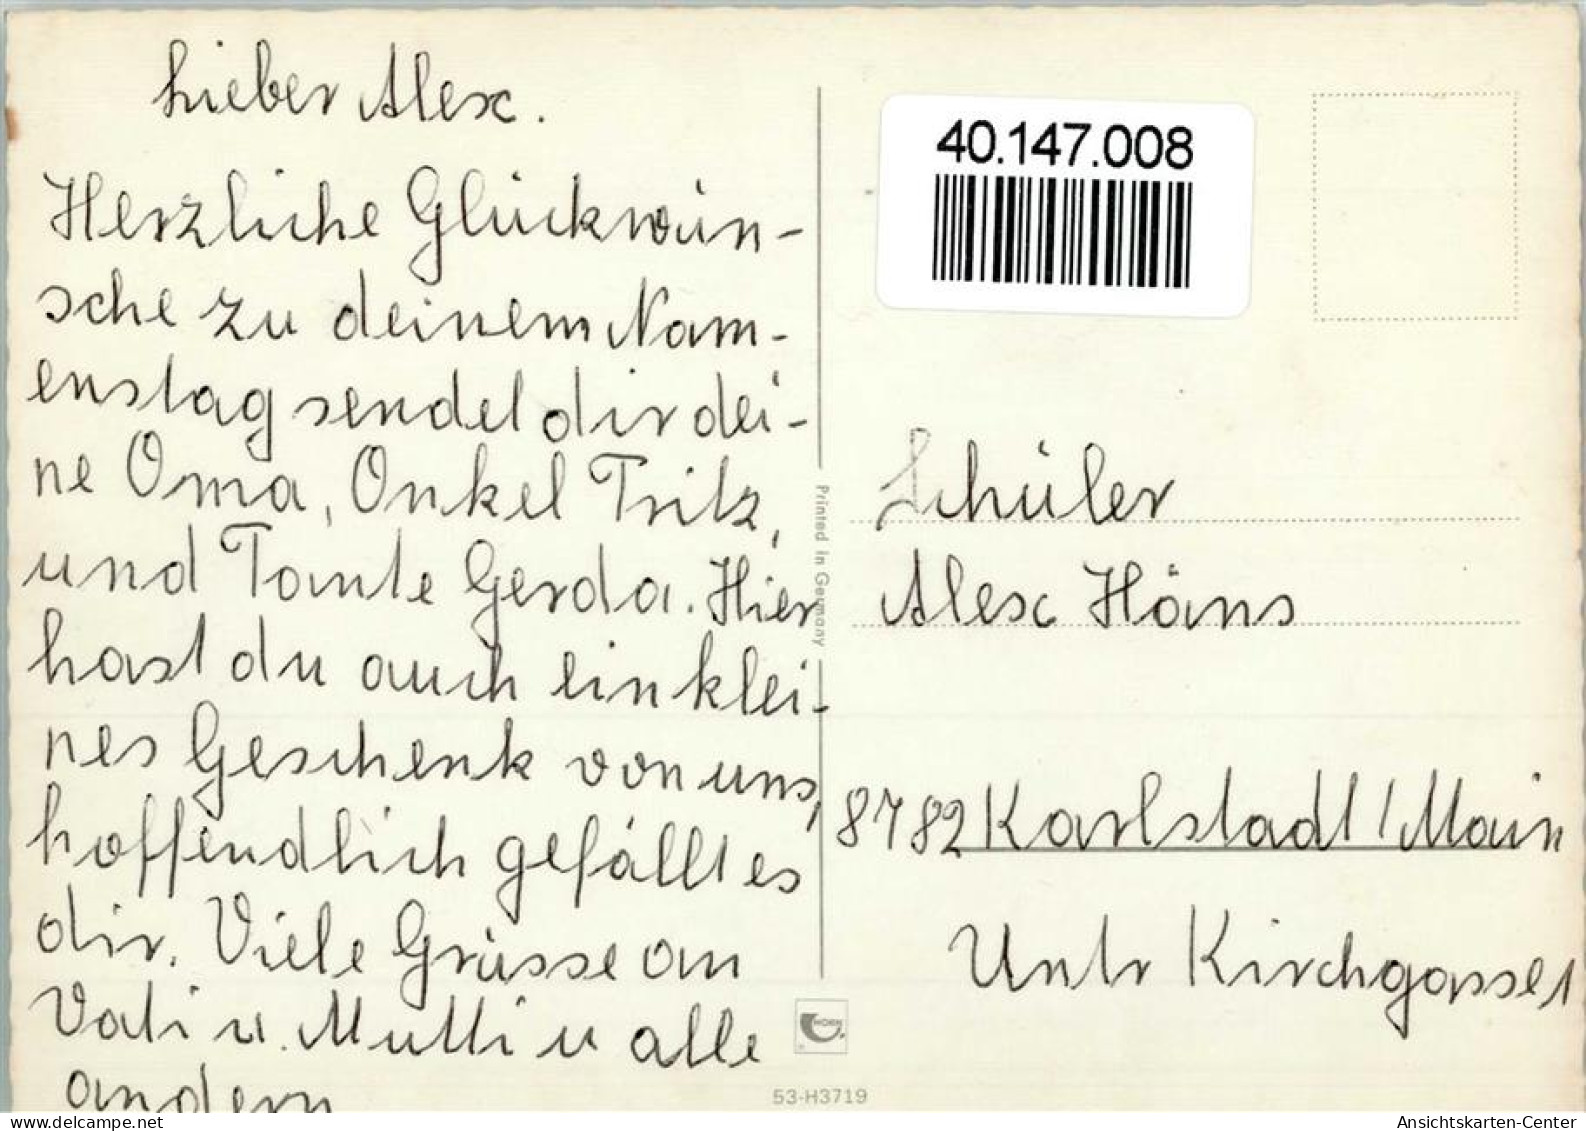 Lieber Alex.
Herzliche Glückwün-
sche zu deinem Nam-
enstag sendet dir dei-
ne Oma, Onkel Fritz,
und Tante Gerda. Hier
hast du auch ein klei-
nes Geschenk von uns,
hoffendlich gefällt es
dir. Viele Grüsse an
Vati u. Mutti u alle
andern
40.147.008
Printed in Germany
Schüler
Alex Häns
8782 Karlstadt / Main
Untr Kirchgasse 1
HORN
53-H3719
delcampe.net
Ansichtskarten-Center